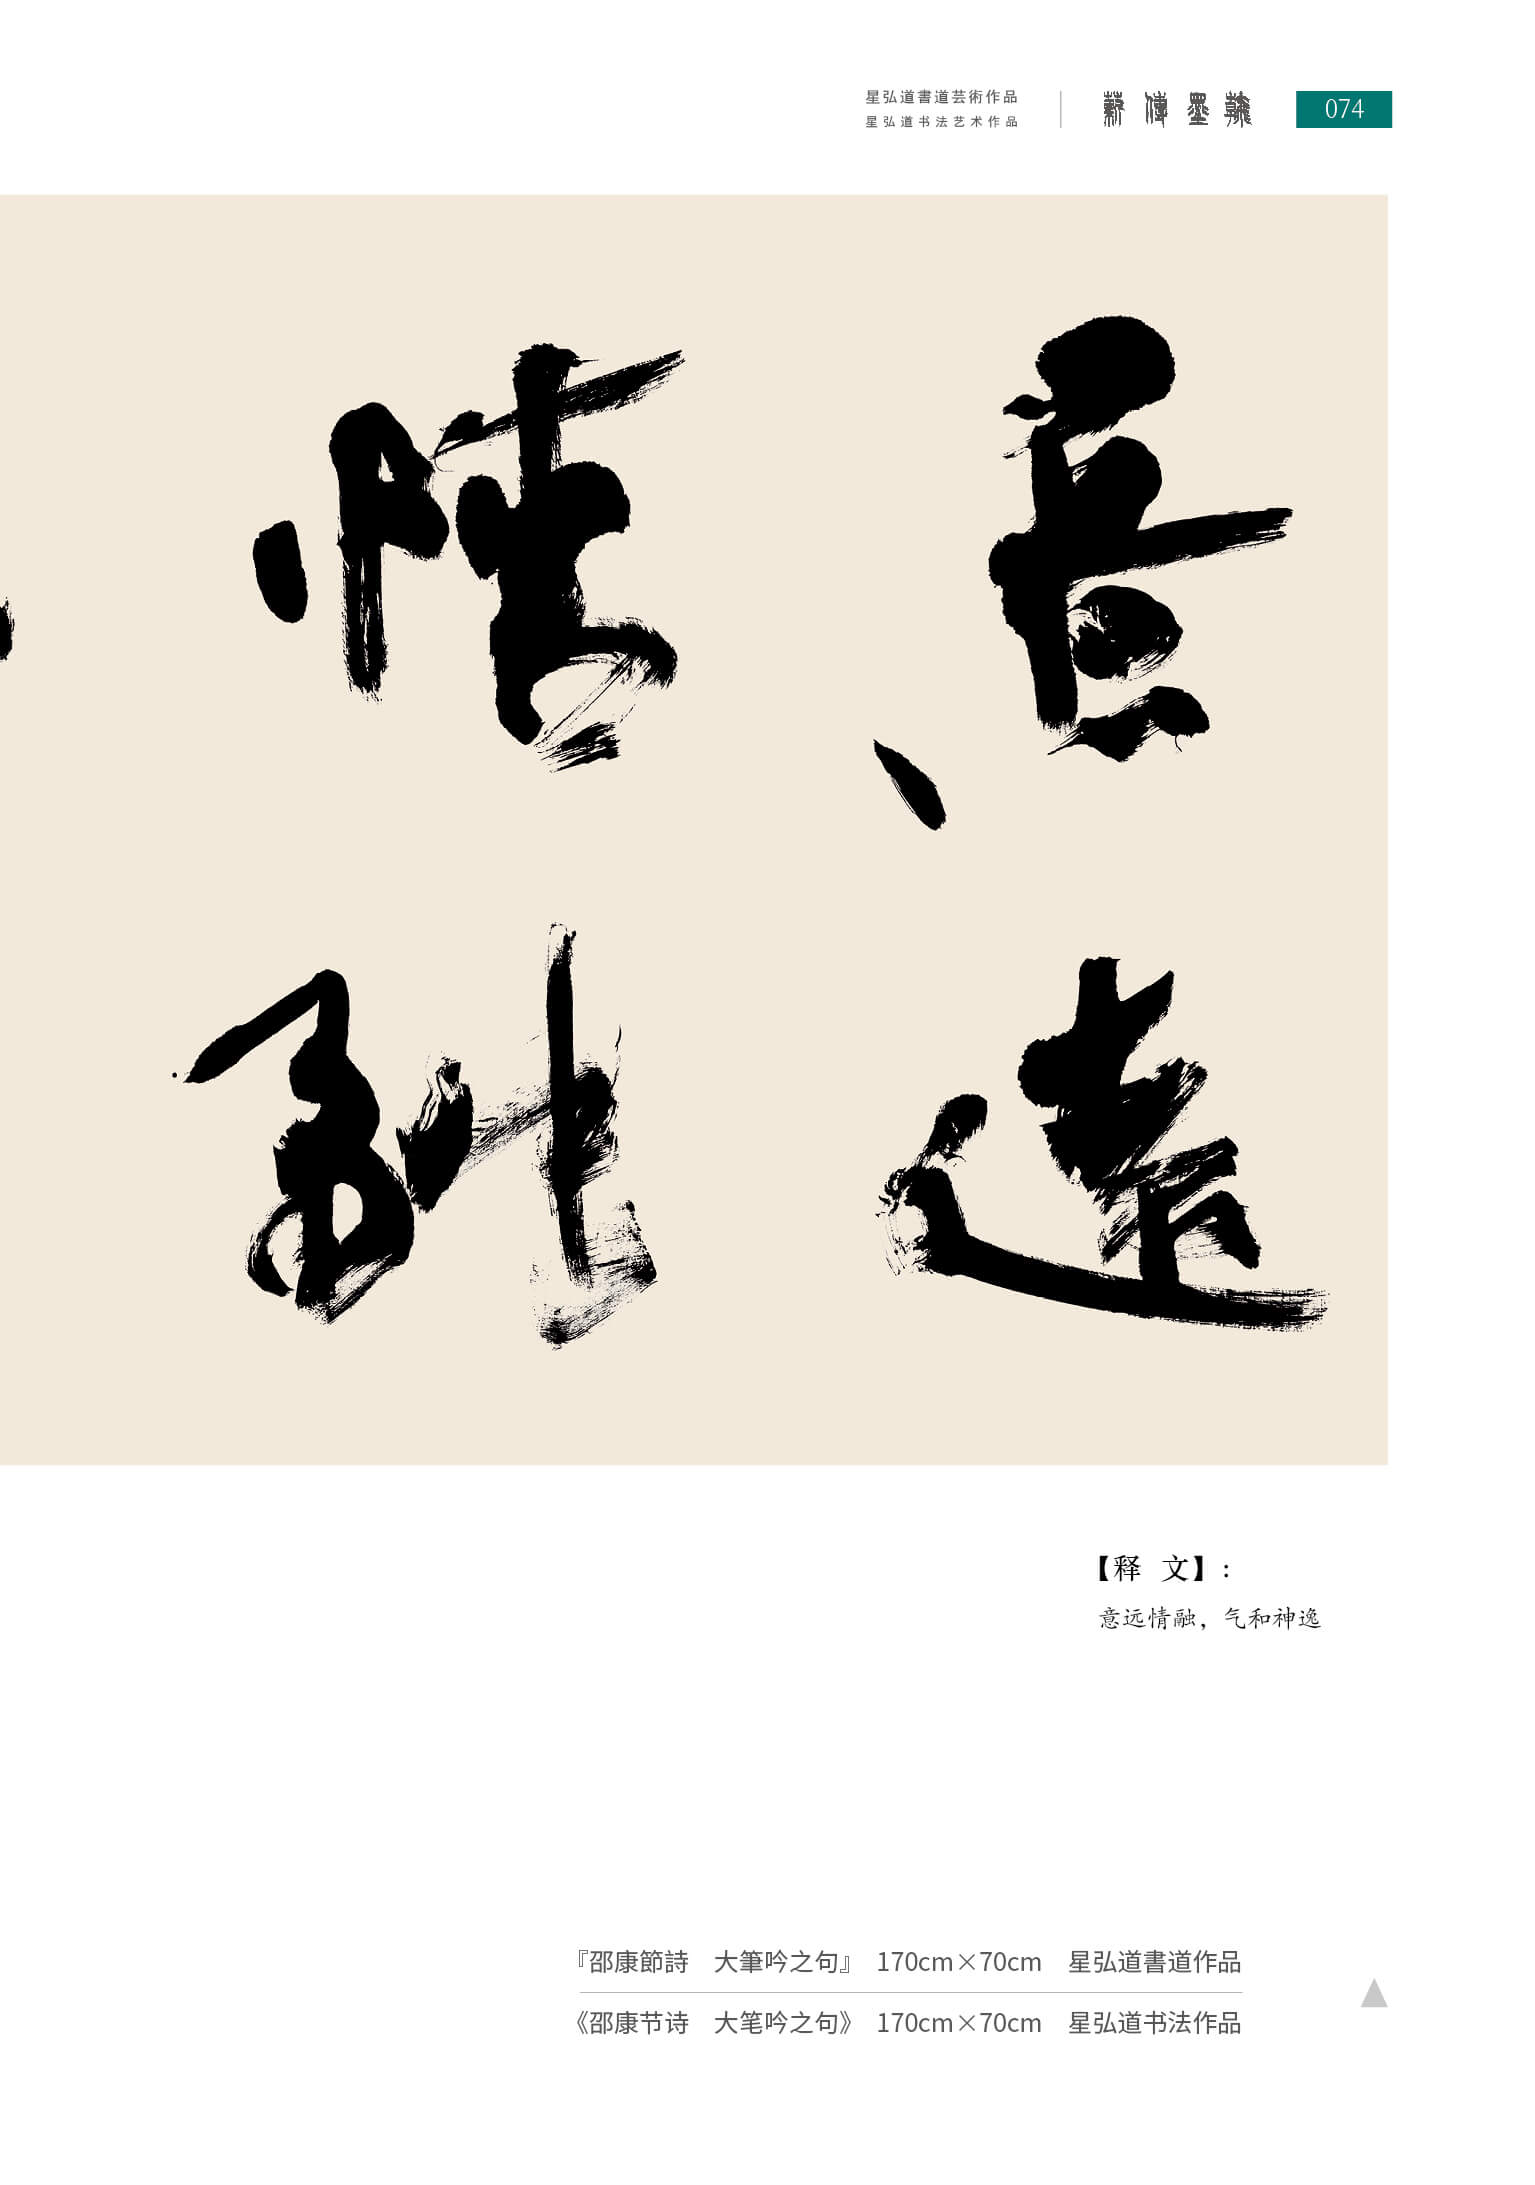 星弘道書道芸術作品
星弘道书法艺术作品
薪傳墨韻
074
意遠
情融
【释 文】：
意远情融，气和神逸
『邵康節詩　大筆吟之句』 170cm×70cm　星弘道書道作品
《邵康节诗　大笔吟之句》 170cm×70cm　星弘道书法作品